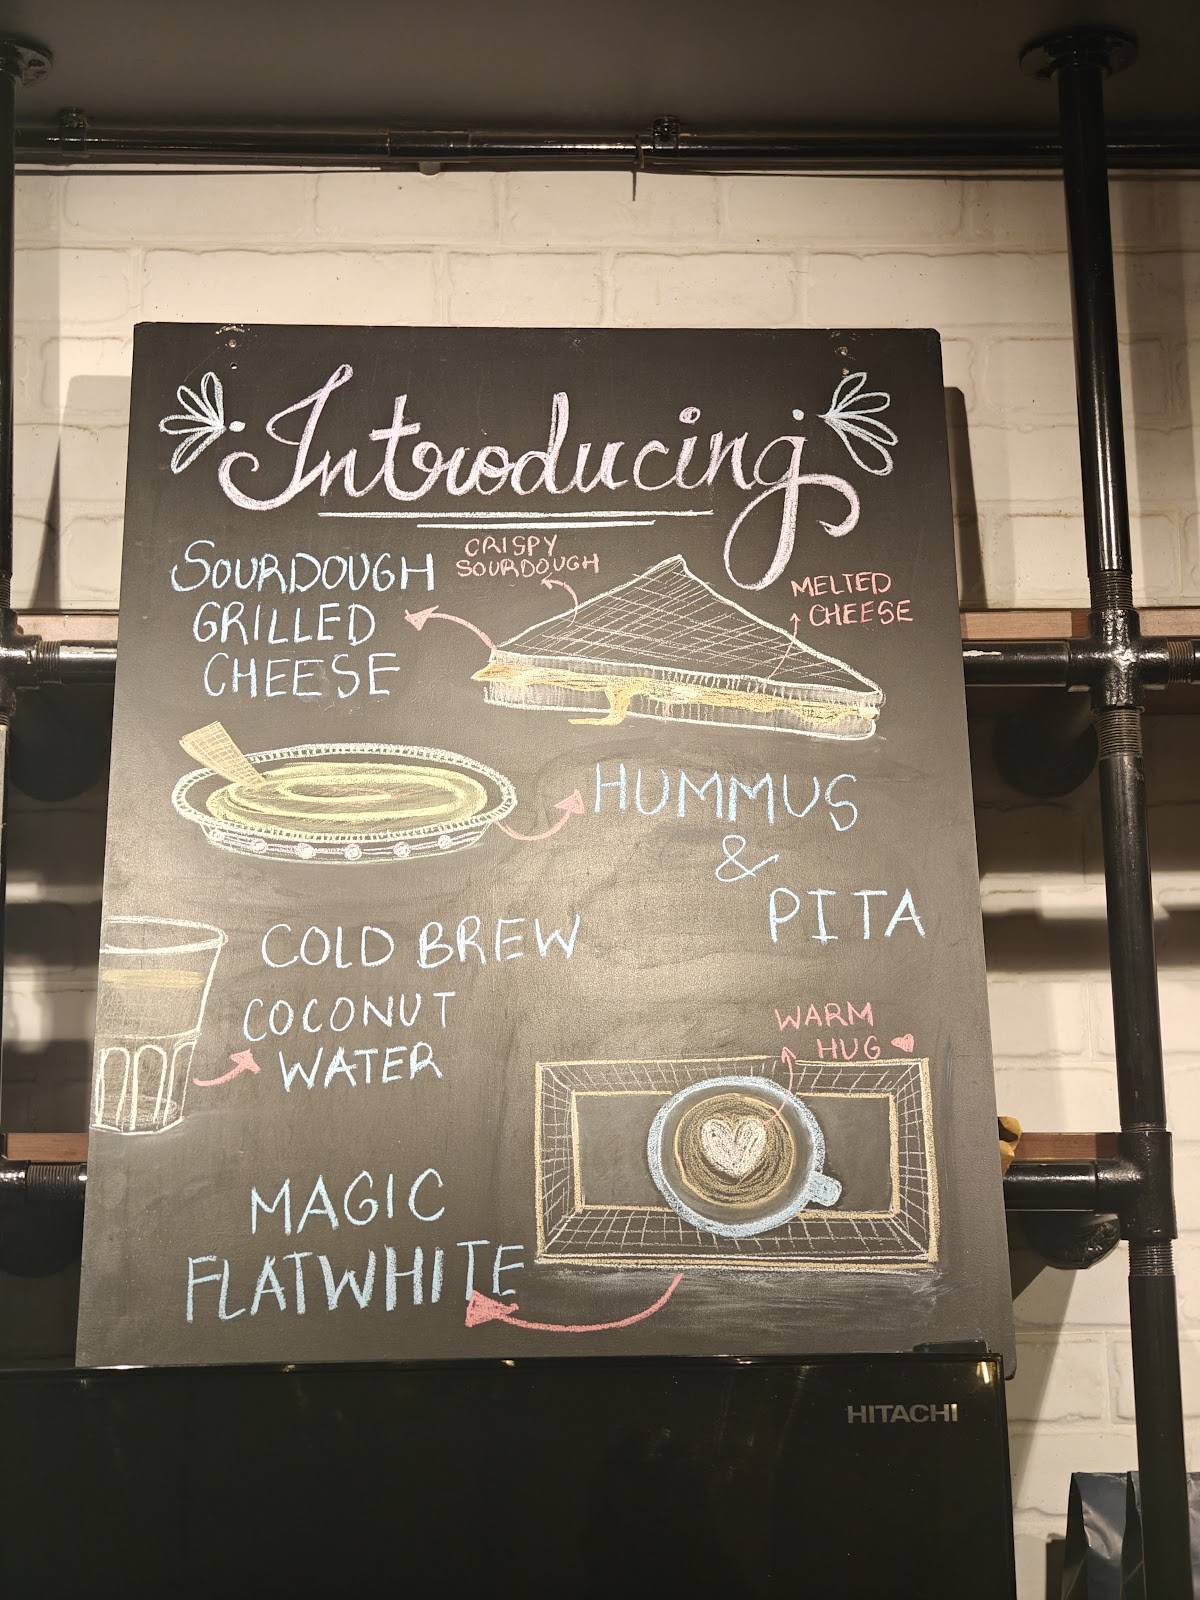 Introducing
SOURDOUGH
GRILLED
CHEESE
CRISPY
SOURDOUGH
MELTED
CHEESE
HUMMUS
&
PITA
COLD BREW
COCONUT
WATER
WARM
HUG
MAGIC
FLATWHITE
HITACHI